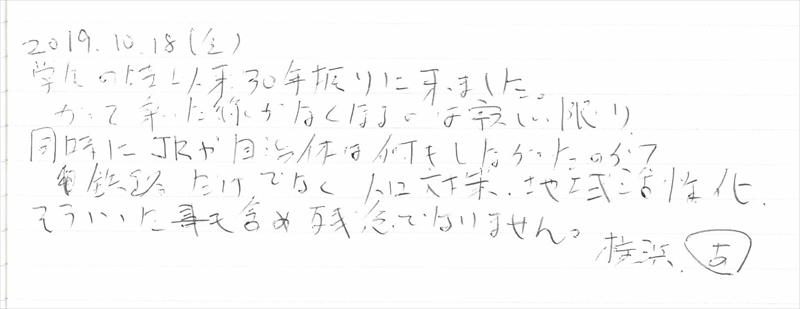 2019.10.18(金)
学生の時以来30年振りに来ました。
かつて乗った線がなくなるのは寂しい限り
同時にJRや自治体は何もしなかったのか?
鉄路だけでなく人口対策、地域活性化、
そういった事も含め残念でなりません。
横浜、あ